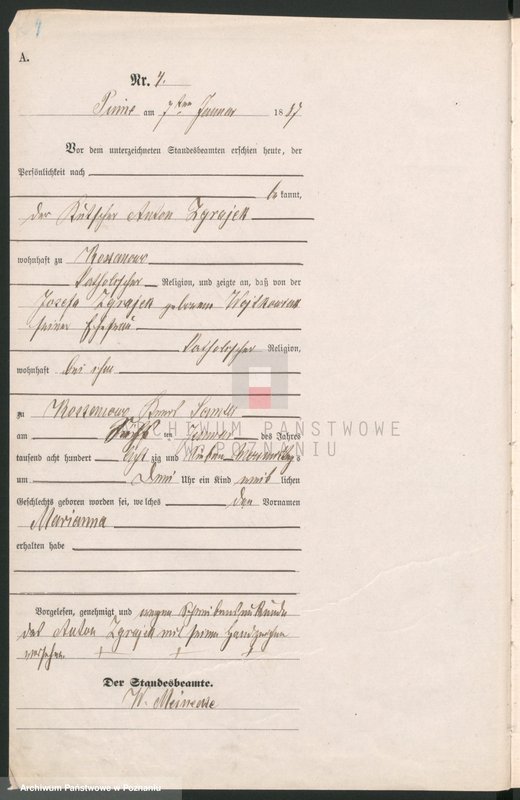 4
A.
Nr. 4.
Pinne am 7ten Januar 1887
Vor dem unterzeichneten Standesbeamten erschien heute, der
Persönlichkeit nach
bekannt,
der Kutscher Anton Zgrajek
wohnhaft zu
katholischer Religion, und zeigte an, daß von der
Josefa Zgrajek geborene
seiner Ehefrau
katholischer Religion,
wohnhaft bei ihm
zu Kreis Samter
am ten Januar des Jahres
tausend acht hundert achtzig und sieben Vormittags
um drei Uhr ein Kind weiblichen
Geschlechts geboren worden sei, welches den Vornamen
Marianna
erhalten habe
Vorgelesen, genehmigt und wegen Schreibensunkunde
des Anton Zgrajek mit seinem Handzeichen
versehen.
+ + +
Der Standesbeamte.
W. Meinecke
ARCHIWUM PAŃSTWOWE
W POZNANIU
Archiwum Państwowe w Poznaniu